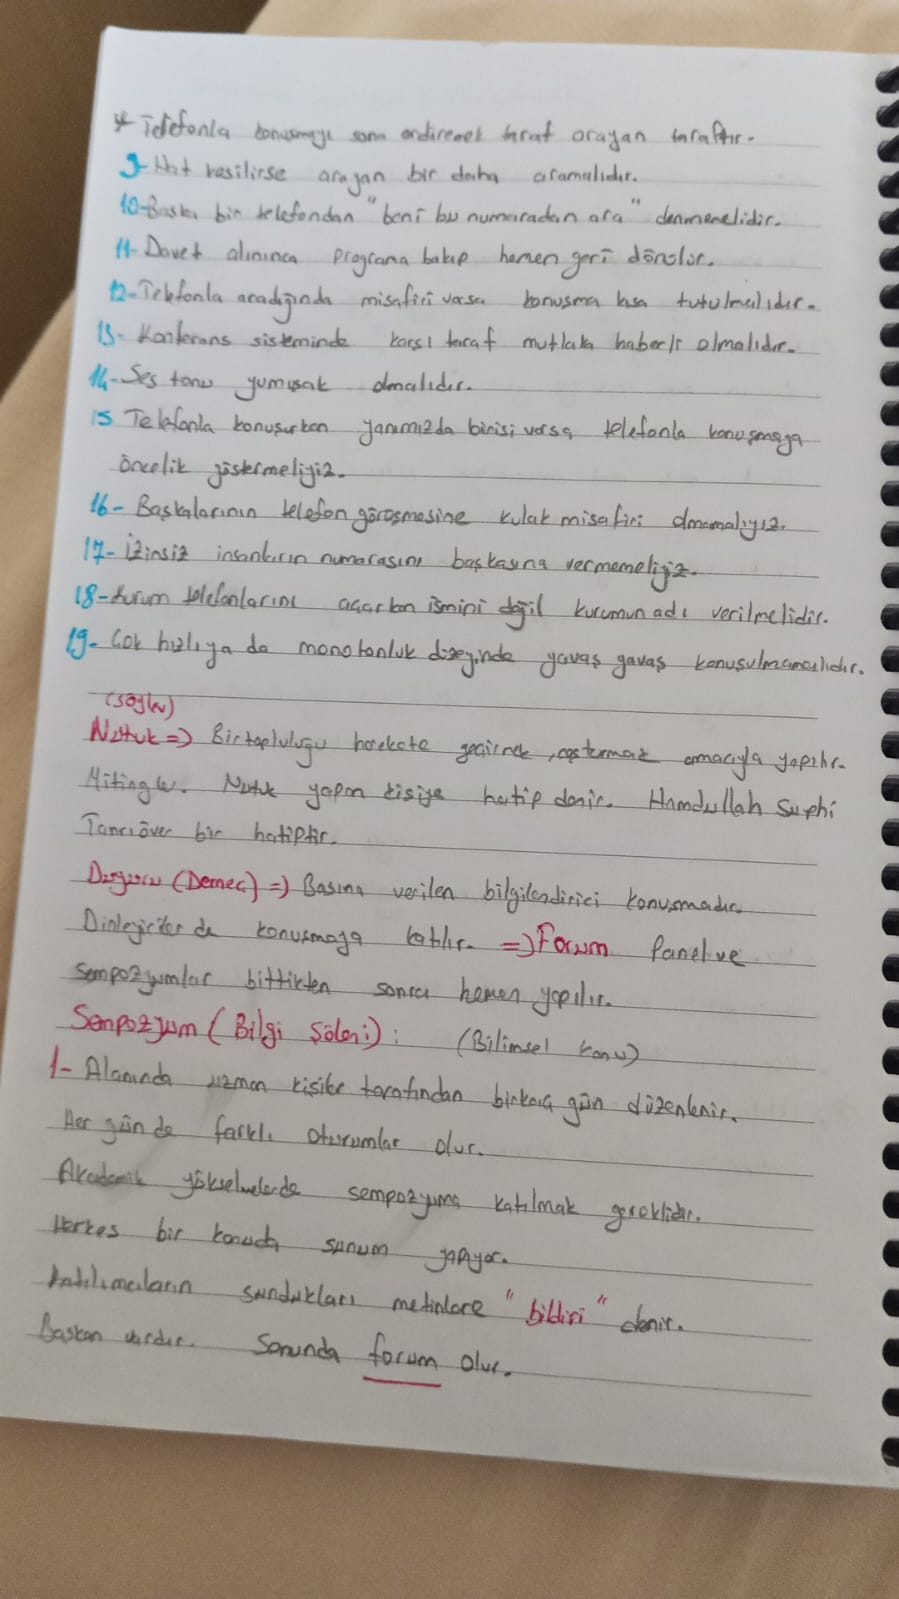 * Telefonla konuşmayı sona erdirecek taraf arayan taraftır.
9- Hat kesilirse arayan bir daha aramalıdır.
10- Başka bir telefondan "beni bu numaradan ara" denmemelidir.
11- Davet alınınca programa bakıp hemen geri dönülür.
12- Telefonla aradığında misafiri varsa konuşma kısa tutulmalıdır.
13- Konferans sisteminde karşı taraf mutlaka haberli olmalıdır.
14- Ses tonu yumuşak olmalıdır.
15 Telefonla konuşurken yanımızda birisi varsa telefonla konuşmaya
öncelik göstermeliyiz.
16- Başkalarının telefon görüşmesine kulak misafiri olmamalıyız.
17- İzinsiz insanların numarasını başkasına vermemeliyiz.
18- Kurum telefonlarını açarken ismini değil kurumun adı verilmelidir.
19- Çok hızlı ya da monotonluk düzeyinde yavaş yavaş konuşulmamalıdır.
(Söylev)
Nutuk => Bir topluluğu harekete geçirmek, coşturmak amacıyla yapılır.
Mitingler. Nutuk yapan kişiye hatip denir. Hamdullah Suphi
Tanrıöver bir hatiptir.
Duyuru (Demeç) => Basına verilen bilgilendirici konuşmadır.
Dinleyiciler de konuşmaya katılır. => Forum Panel ve
sempozyumlar bittikten sonra hemen yapılır.
Sempozyum (Bilgi Şöleni): (Bilimsel konu)
1- Alanında uzman kişiler tarafından birkaç gün düzenlenir.
Her günde farklı oturumlar olur.
Akademik yükselmelerde sempozyuma katılmak gereklidir.
Herkes bir konuda sunum yapıyor.
Katılımcıların sundukları metinlere "bildiri" denir.
Başkan vardır. Sonunda forum olur.